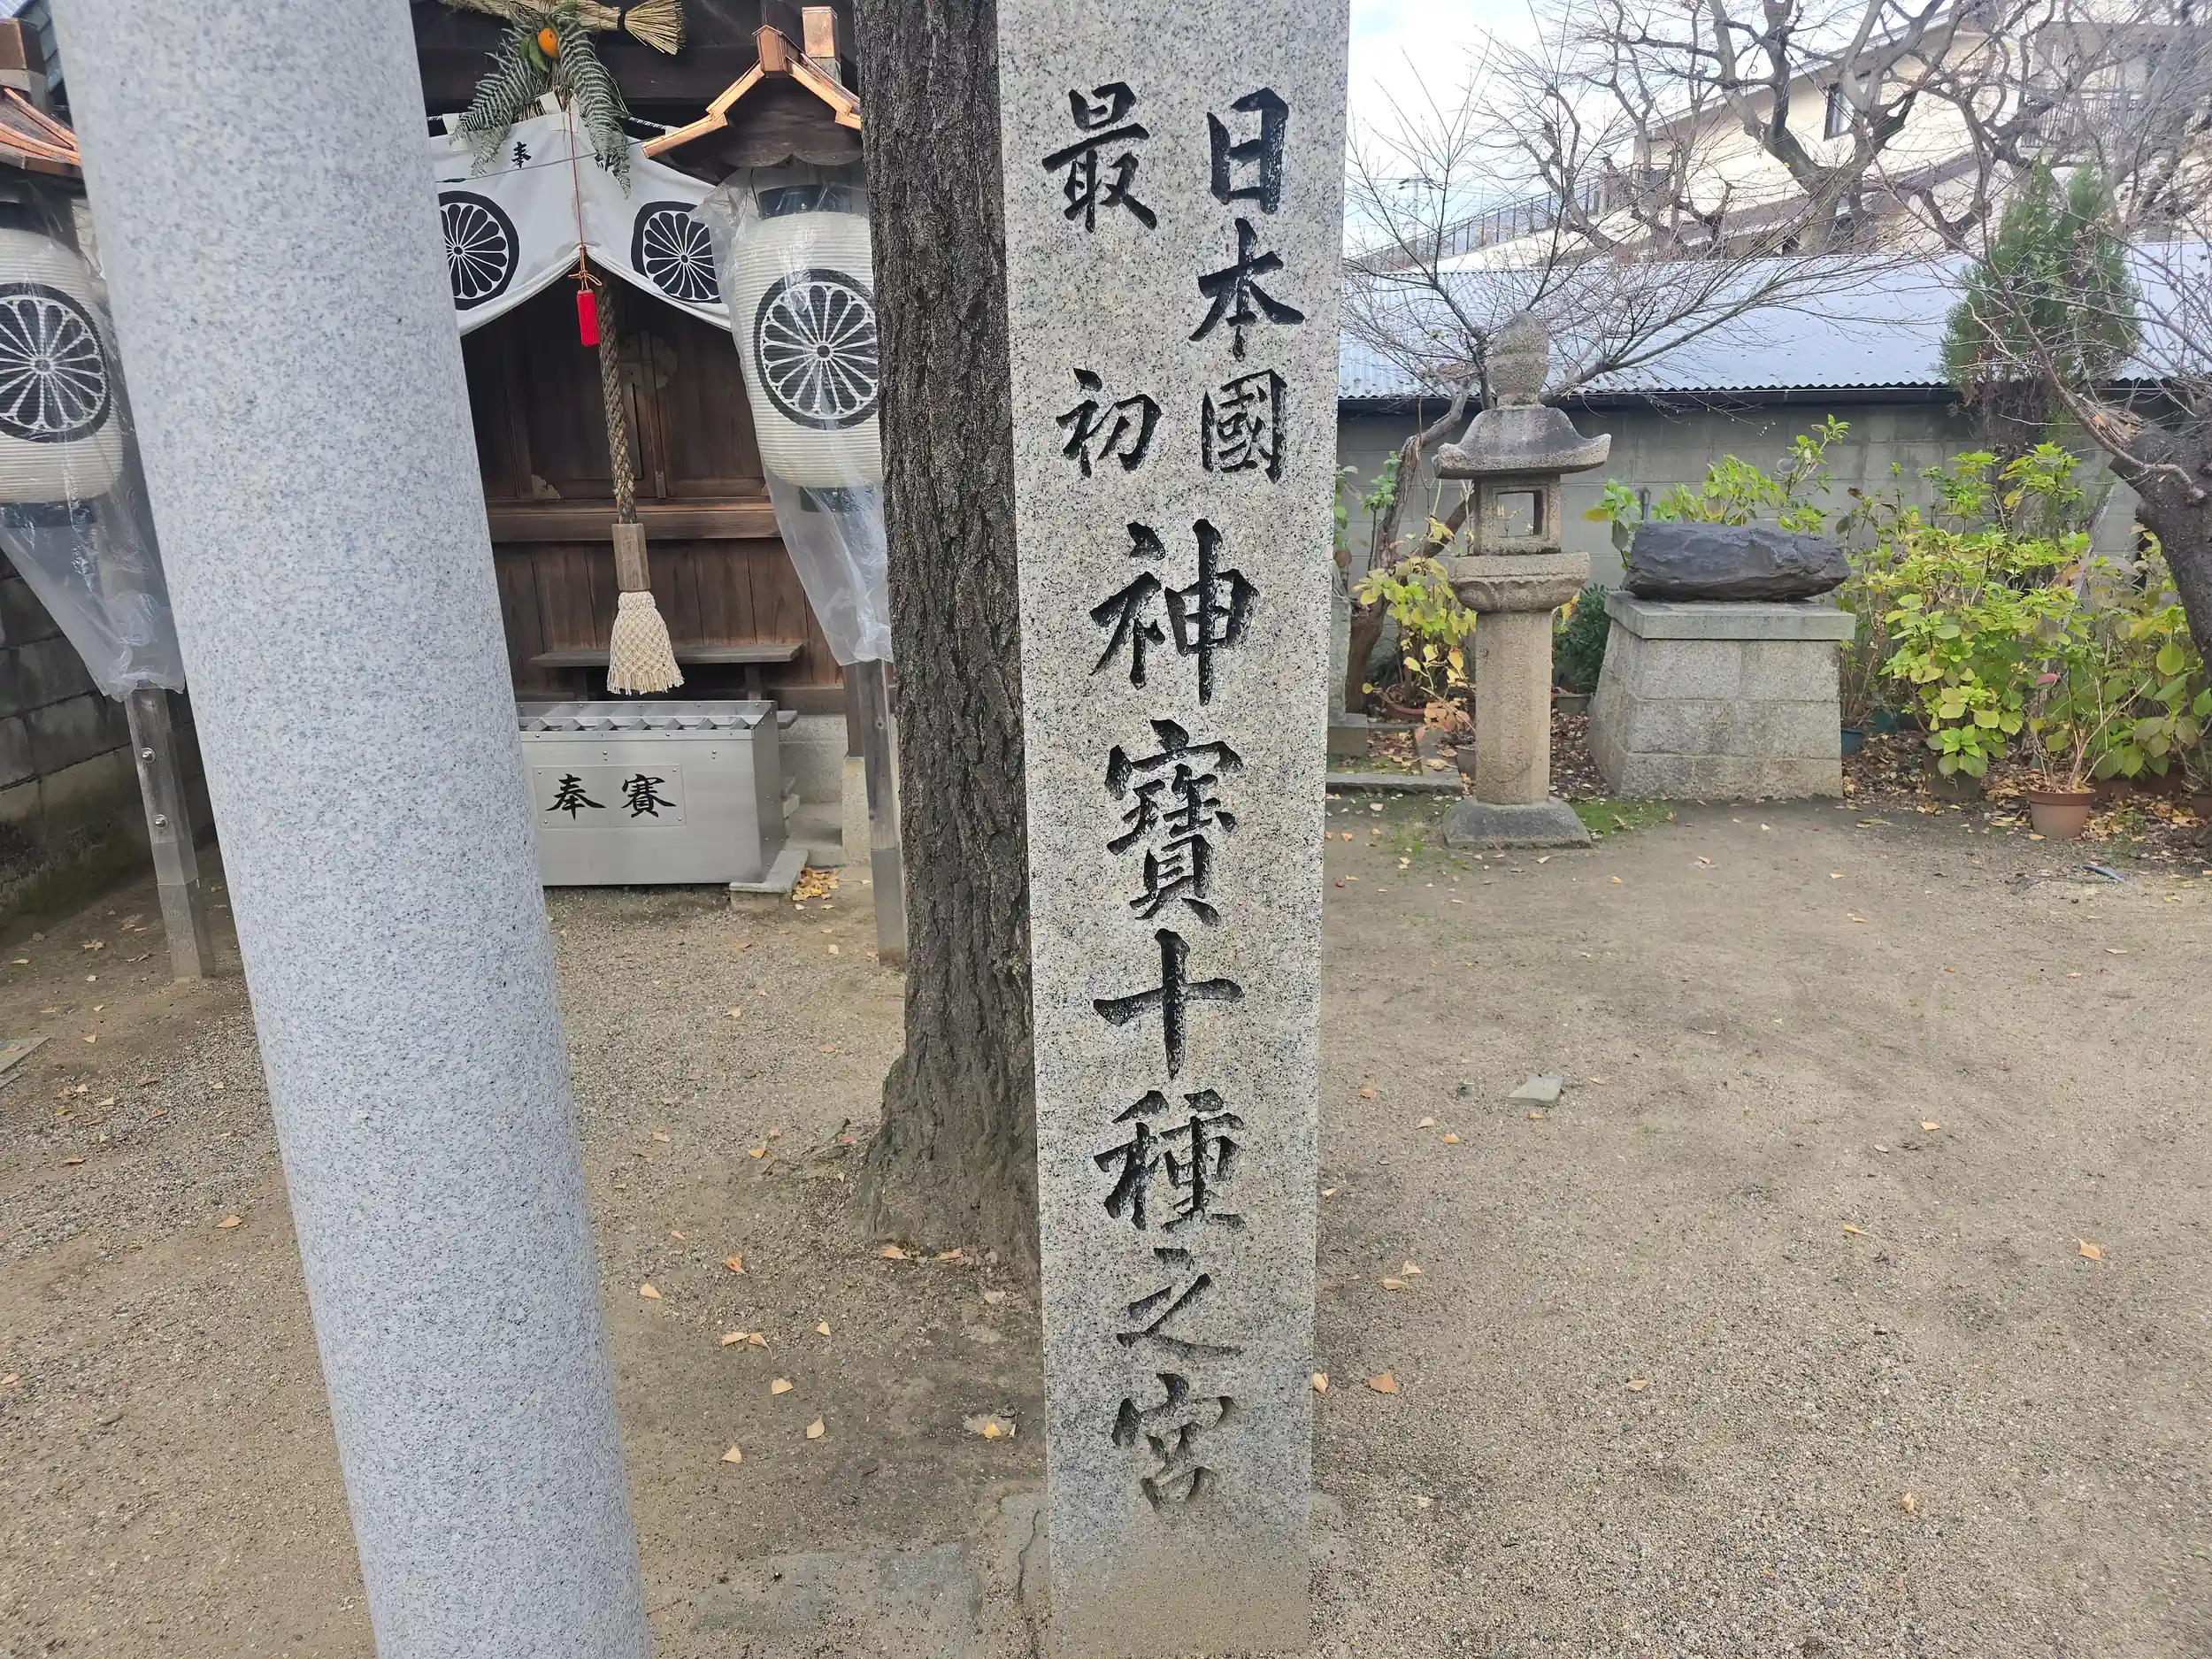 日本國
最初
神寳十種之宮
奉
奉賽